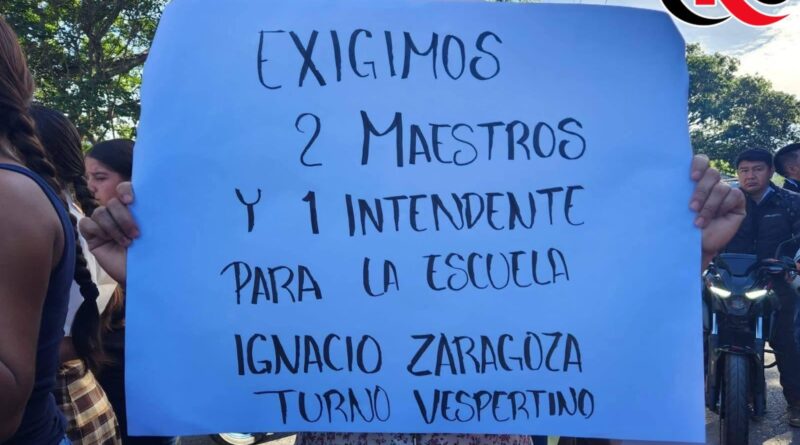 EXIGIMOS
2 MAESTROS
Y 1 INTENDENTE
PARA LA ESCUELA
IGNACIO ZARAGOZA
TURNO VESPERTINO